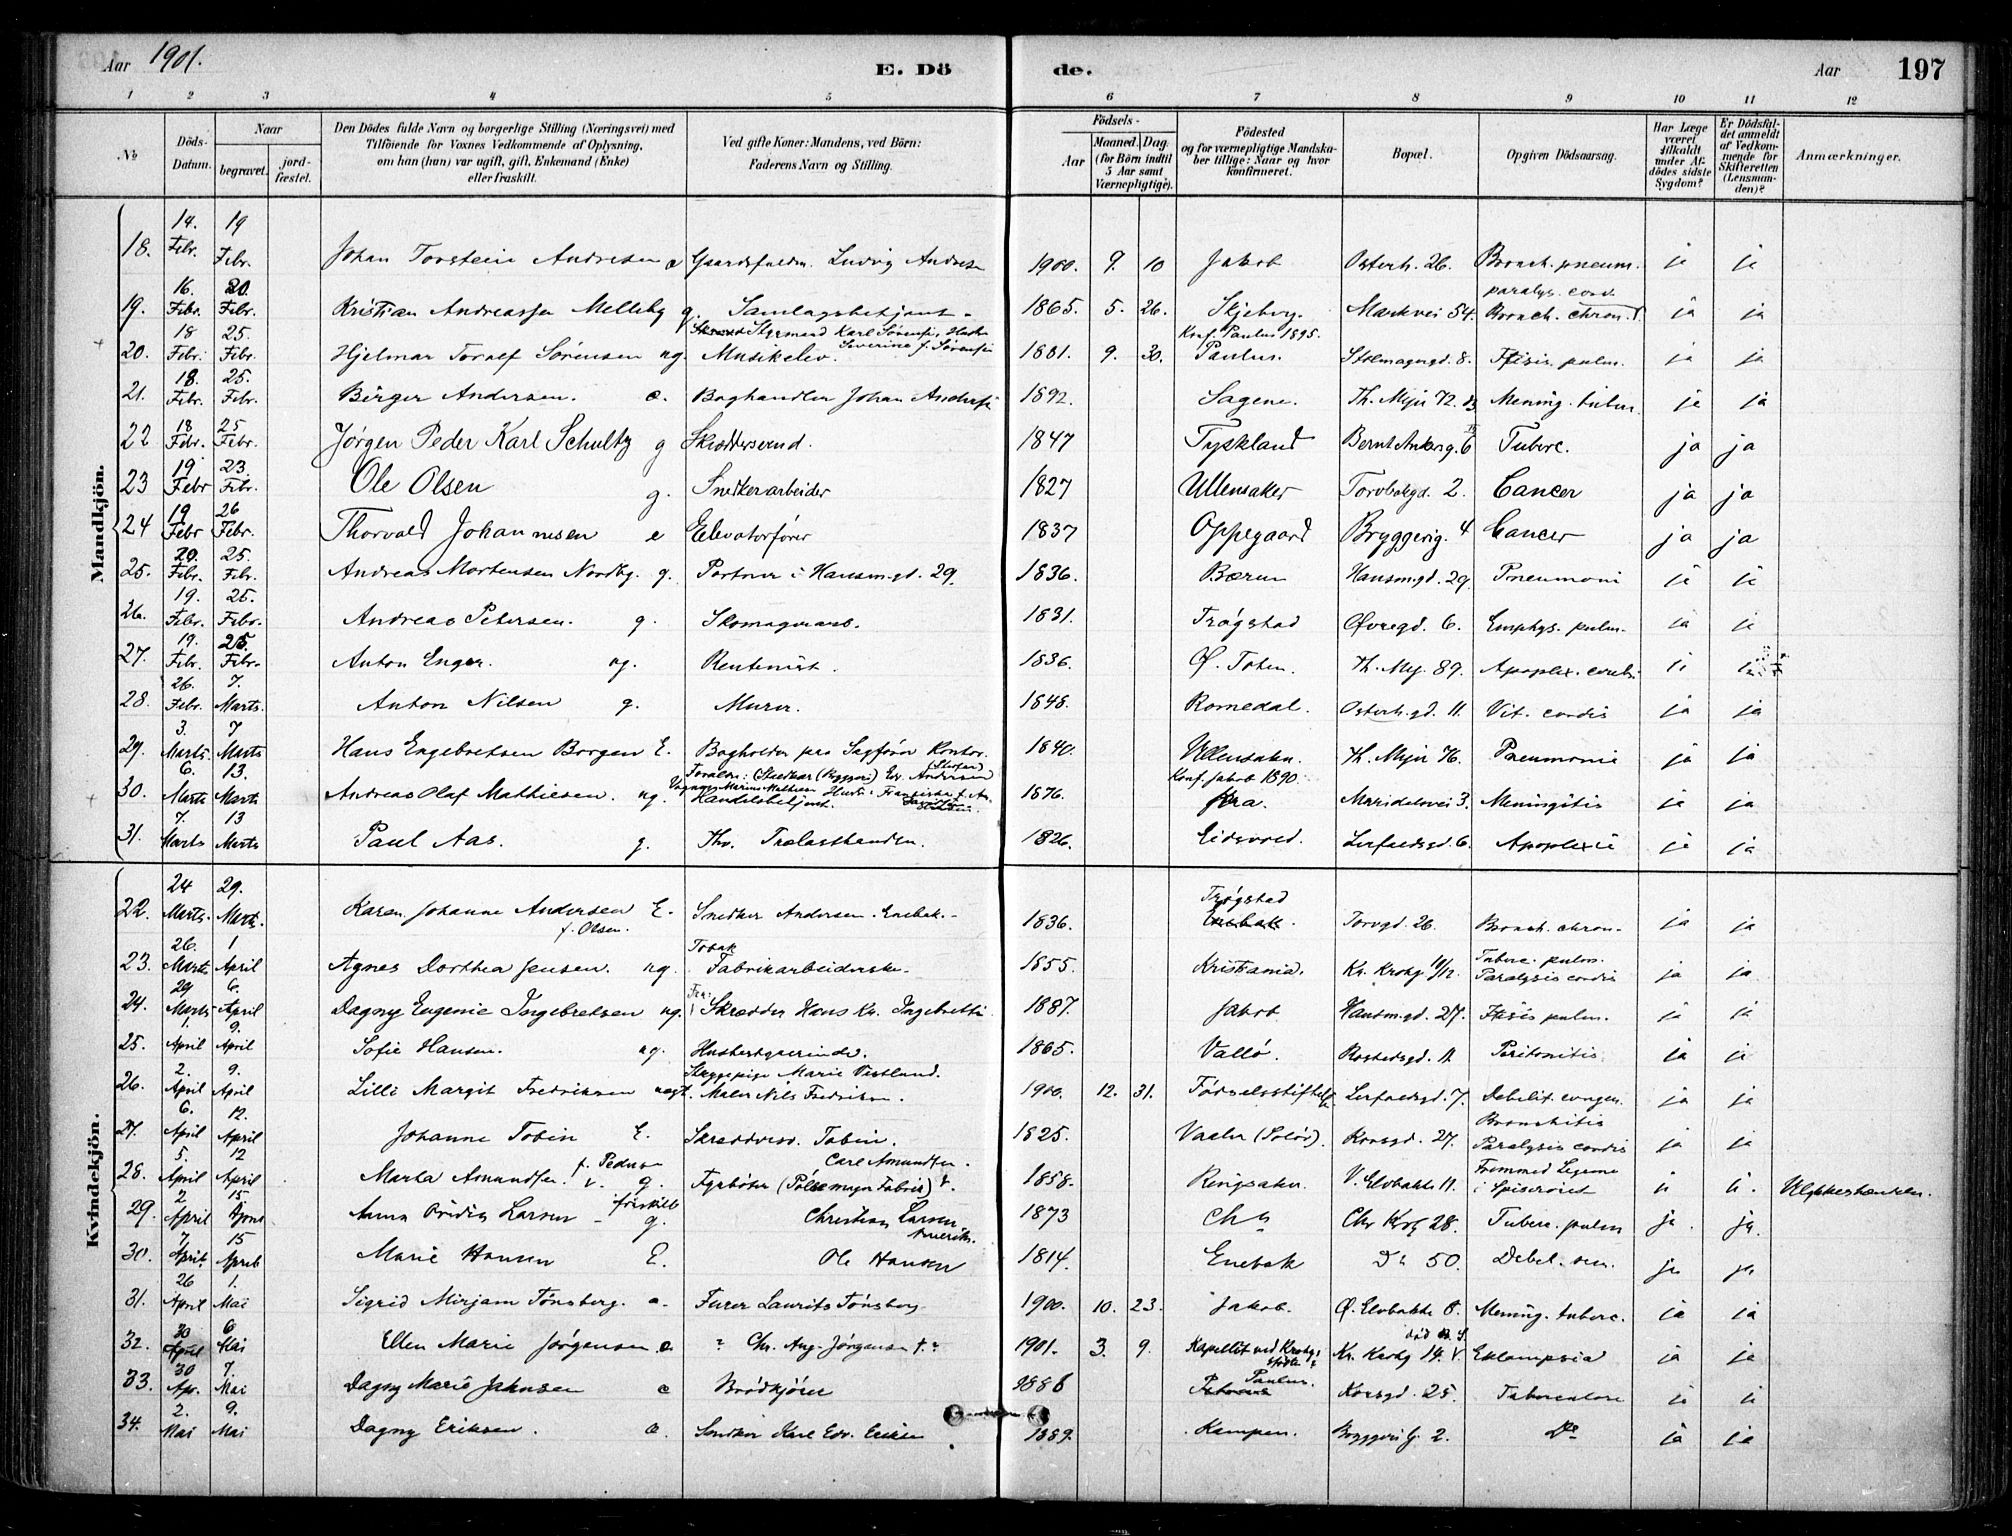 Aar 1901. E. Dö de. Aar 197
1 2 3 4 5 6 7 8 9 10 11 12
No Döds-Datum. Naar begravet. jord-fæstet. Den Dödes fulde Navn og borgerlige Stilling (Næringsvei) med Tilföiende for Voxnes Vedkommende af Oplysning, om han (hun) var ugift, gift, Enkemand (Enke) eller fraskilt. Ved gifte Koner: Mandens, ved Börn: Faderens Navn og Stilling. Födsels- Aar Maaned. Dag. (for Börn indtil 5 Aar samt Værnepligtige). Födested og for værnepligtige Mandska-ber tillige: Naar og hvor konfirmeret. Bopæl. Opgiven Dödsaarsag. Har Læge været tilkaldt under Af-dödes sidste Sygdom? Er Dödsfal-det anmeldt af Vedkom-mende for Skifteretten (Lensman-den)? Anmærkninger.
Mandkjön.
18. 14. Febr. 19 Febr. Johan Torstein Andresen e Gaardsfuldm. Ludvig Andresen 1900. 9. 10 Jakob Osterh. 26. Bronch. pneum. ja ja
19. 16. Febr. 20. Febr. Kristian Andreassen Melleby g. Samlagsbetjent 1865. 5. 26. Skjeberg. Markvei 54. paralys. cord. Bronch. chron. ja ja
20. 18 Febr. 25. Febr. Hjelmar Toralf Sørensen ug. Styrmand Karl Sørensen, Hustru Severine f. Sørensen Musikelev. 1881. 9. 30. Konf. Paulus 1895. Paulus. Stolmagergd. 8. Ftisis. pulm. ja ja
21. 18. Febr. 25. Febr. Birger Andersen. e. Boghandler Johan Andersen 1892. Sagene. Th. Myer 72. Mening. tuberc. ja ja
22 18 Febr. 25 Febr. Jørgen Peder Karl Schultz g Skræddersvend. 1847 Tyskland Bernt Ankersg. 6 Tuberc. ja ja
23 19 Febr 23. Febr. Ole Olsen g. Snedkerarbeider 1827 Ullensaker Torvbakgd. 2. Cancer ja ja
24 19 Febr 26 Febr. Thorvald Johannesen e Elevatorfører 1837 Oppegaard Bryggerig. 4 Cancer ja ja
25. 20. Febr. 25. Febr. Andreas Mortensen Nordbg. g. Portner i Hausm.gd. 29. 1836. Bærum Hausm.gd. 29. Pneumoni ja ja
26. 19. Febr. 25. Febr. Andreas Petersen. g. Skomagerarb. 1831. Trøgstad Øvregd. 6. Emphys. pulm. ja ja
27. 19. Febr. 25 Febr. Anton Enger. ug. Rentenist. 1836. Ø. Toten. Th. My. 89. Apoplex. cerebri ja
28. 26. Febr. 7. Marts. Anton Nilsen g. Murer. 1848. Romedal. Osterh.gd. 11. Vit. cordis ja ja
29. 3. Marts 7 Marts Hans Engebretsen Borgen E. Bogholder paa Sagfører Kontor. 1840. Ullensaker. Th. Myer 76. Pneumonie ja ja
30. 6. Marts 13. Marts Andreas Olaf Mathiesen. ug. Handelsbetjent. 1876. Konf. Jakob 1890. Kra. Maridalsvei 3. Meningitis ja ja
31. 7. Marts 13 Marts Paul Aas. g. Thv. Trælasthandler. 1826. Eidsvold. Lerfaldsgd. 6. Apoplexie ja ja
Kvindekjön.
22. 24 Marts. 29. Marts. Karen Johanne Andersen f. Olsen. E. Snedker Andersen. Enebak. 1836. Trøgstad Enebak. Torvgd. 26. Bronch. chron. ja ja
23. 26. Marts 1 April Agnes Dorthea Jensen. ug. Tobak Fabrikarbeiderske. 1855. Kristiania. Kr. Krohg 10/12. Tuberc. pulm. Paralysis cordis ja ja
24. 29 Marts 6. April Dagny Eugenie Ingebretsen ug. Skrædder Hans Kr. Ingebretsen 1887. Jakob Hausm.gd. 27. Ftisis pulm. ja ja
25. 1. April 9. April Sofie Hansen. ug. Husbestyrerinde. 1865. Vallø. Rostedsgd. 11. Peritonitis ja ja
26. 2. April 9. April Lilli Margit Fredriksen uegt. Stryggepige Marie Vestlund. Maler Nils Fredriksen. 1900. 12. 31. Fødselsstiftelse Lerfaldsgd. 7. Debilit. congen. ja ja
27. 6. April 12. April Johanne Tobin E. Skræddersv. Tobin. 1825. Vaaler (Soløer). Korsgd. 27. Bronchitis Paralysis cordis ja ja
28. 5. April 12 April Marta Amundsen f. Pedersen g. Carl Amundsen. Fyrbøter (Pølsemager Fabrik) 1858. Ringsaker. V. Elvbakke 11. Fremmed Legeme i Spiserøret ja ja. Ulykkeshændelse.
29. 2 April 15 April Anna Larsen fraskilt g. Christian Larsen Amerika. 1873 Cha Chr Krohg 28. Tuberc. pulm ja. ja.
30. 7. April. 15 April Marie Hansen E. Ole Hansen 1814. Enebak Do 50. Debil. sen. ja ja
31. 26 April 1. Mai Sigrid Mirjam Tønsberg. e. Furer Laurits Tønsberg 1900. 10. 23. Jakob. Ø. Elvbakke 8. Mening. tuberc. ja ja
32. 30 April 6 Mai Ellen Marie Jørgensen e " Chr. Aug. Jørgensen 1901. 3. 9. Kapellet ved Krohgs støtte Kr. Krohg 14. Eklampsia ja ja
33. 30 Apr. 7. Mai Dagny Marie Jahnsen e Brødkjører 1886 Paulus. Korsgd. 25. Tuberculose ja ja
34. 2. Mai 9. Mai Dagny Eriksen. e. Snedker Karl Edv. Eriksen 1889. Kampen. Bryggerig. 2. Do ja ja